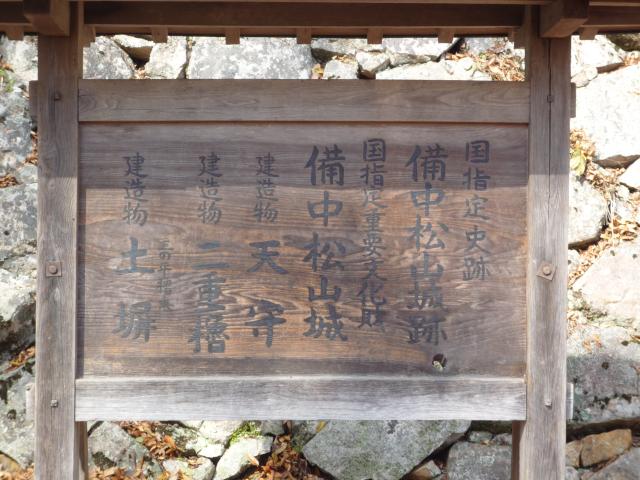 国指定史跡
備中松山城跡
国指定重要文化財
備中松山城
建造物 天守
建造物 二重櫓
三の平櫓東
建造物 土塀